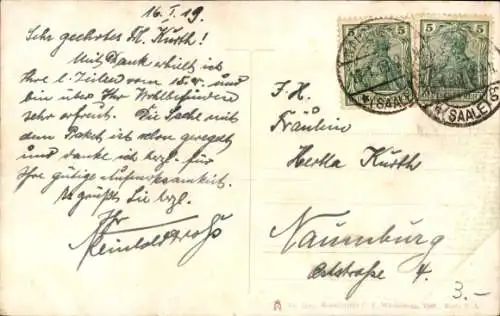 16. I. 19.
Sehr geehrtes Frl. Kurth!
Mit Dank erhielt ich
Ihre l. Zeilen vom 15. und
bin über Ihr Wohlbefinden
sehr erfreut. Die Sache mit
dem Paket ist schon geregelt
und danke ich hzl. für
Ihre gütige Aufmerksamkeit.
Es grüßt Sie hzl.
Ihr
Reinhold
5 5
(SAALE) (SAALE)
I. H.
Fräulein
Hertha Kurth
Naumburg
Oststraße 4.
3.-